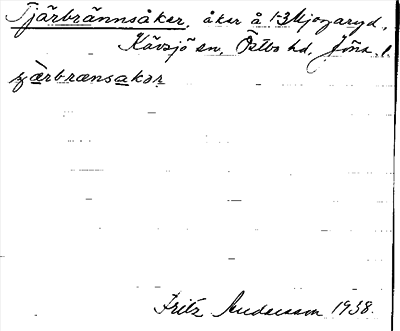 Tjärbrännsåker, åker å 1-3 Mjogaryd,
Kävsjö sn, Östbo hd, Jöns. l.
çærbrænsakər
Fritz Andersson 1938.